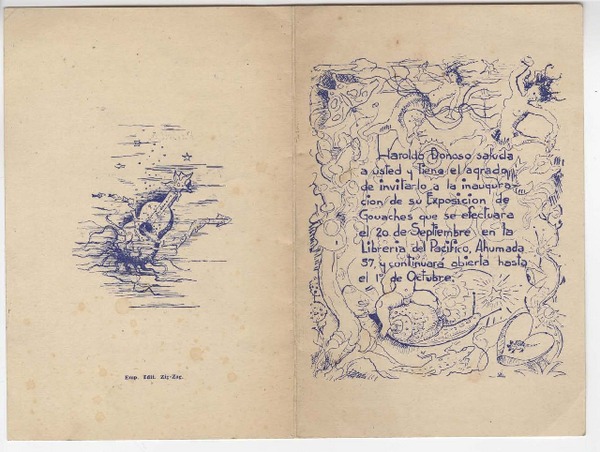 Emp. Edit. Zig-Zag.
Haroldo Donoso saluda
a usted y tiene el agrado
de invitarlo a la inaugura-
cion de su Exposicion de
Gouaches que se efectuara
el 20 de Septiembre en la
Libreria del Pacifico, Ahumada
57, y continuará abierta hasta
el 1º de Octubre.